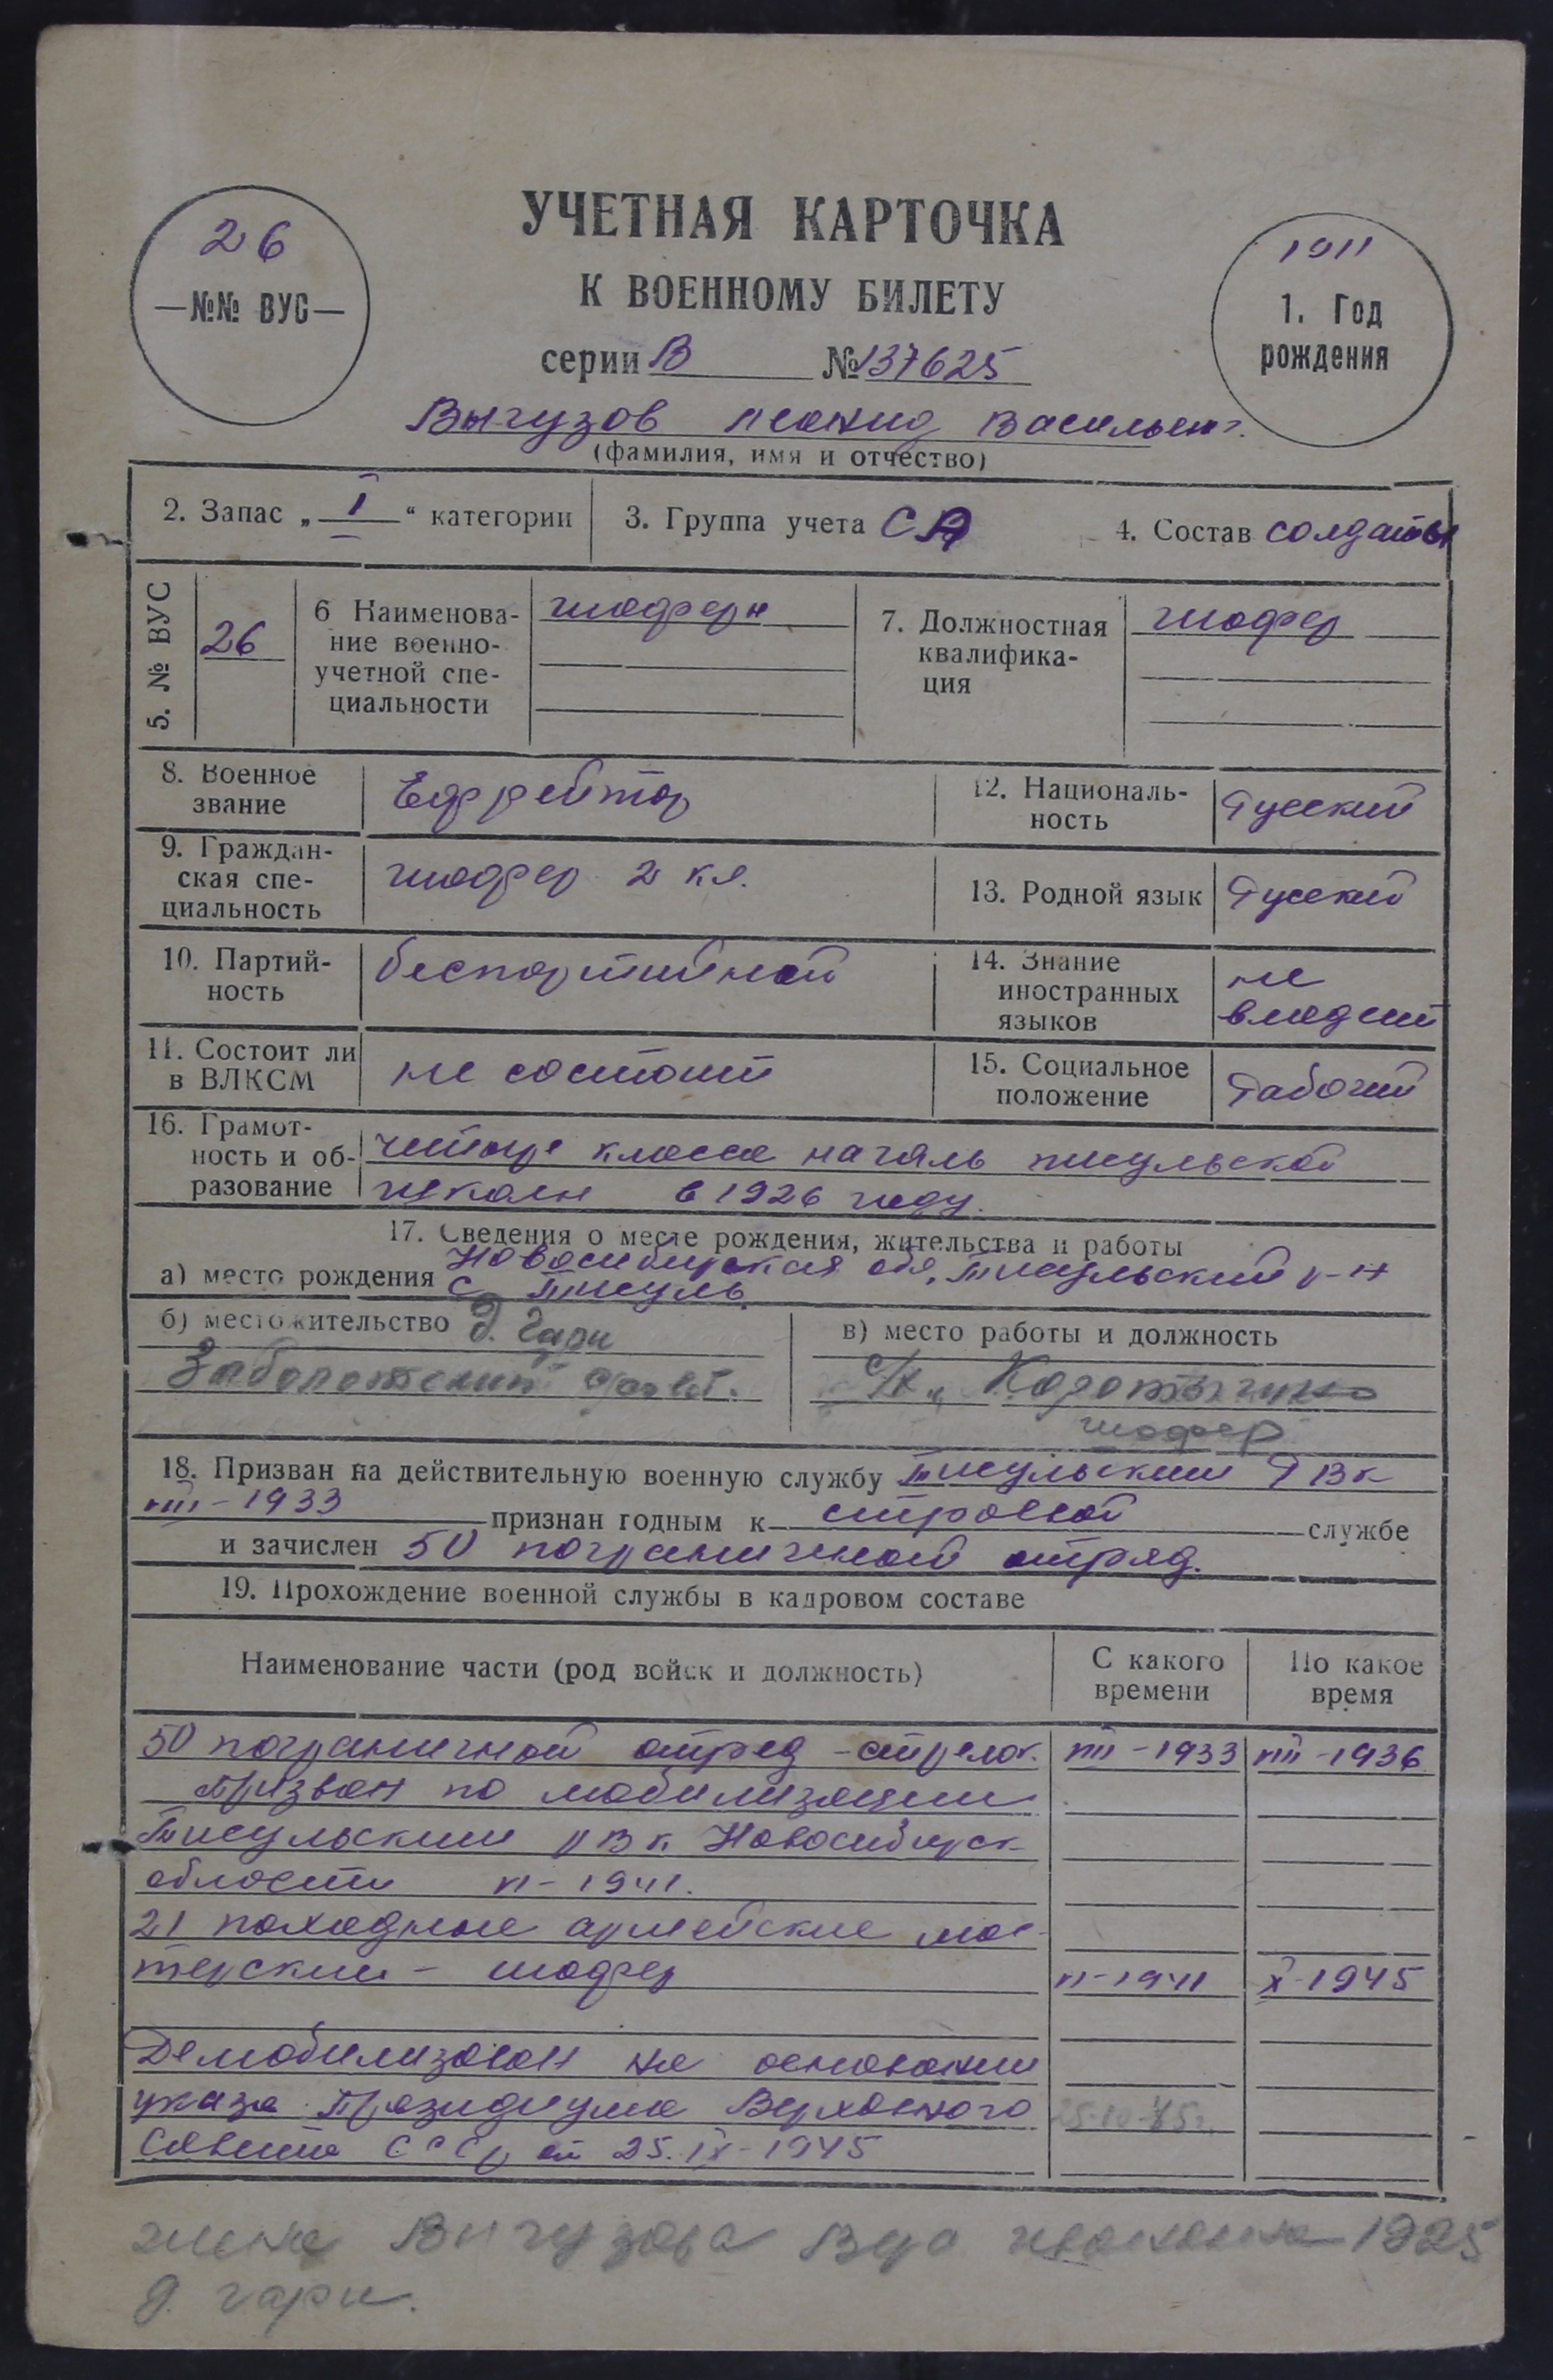 УЧЕТНАЯ КАРТОЧКА
К ВОЕННОМУ БИЛЕТУ
серии В № 137625
26
—№№ ВУС—
1911
1. Год
рождения
Вычузов Леонид Васильев.
(фамилия, имя и отчество)
2. Запас „ I “ категории
3. Группа учета СА
4. Состав солдаты
5. № ВУС
26
6 Наименова-
ние военно-
учетной спе-
циальности
шофера
7. Должностная
квалифика-
ция
шофер
8. Военное
звание
Ефрейтор
12. Националь-
ность
Русский
9. Граждан-
ская спе-
циальность
шофер 2 кл.
13. Родной язык
Русский
10. Партий-
ность
беспартийной
14. Знание
иностранных
языков
не
владеит
11. Состоит ли
в ВЛКСМ
не состоит
15. Социальное
положение
Рабочий
16. Грамот-
ность и об-
разование
класса началь тисульской
школы в 1926 году.
17. Сведения о месте рождения, жительства и работы
а) место рождения Новосибирская обл, Тисульский р-н
с. Тисуль
б) местожительство д. Гари
Заболотский
в) место работы и должность
с/х „
шофер
18. Призван на действительную военную службу Тисульским РВК
VIII-1933 признан годным к строевой службе
и зачислен 50 пограничной отряд.
19. Прохождение военной службы в кадровом составе
Наименование части (род войск и должность)
С какого
времени
По какое
время
50 пограничной отряд - стрелок. VIII-1933 VIII-1936
Призван по мобилизации
Тисульским РВК Новосибирск
области VI-1941.
21 походные армейские мас-
терские - шофер VI-1941 X-1945
Демобилизован на основании
указа Президиума Верховного
Совета СССР от 25.IX-1945
жена Вычузова 1925
д. гари.